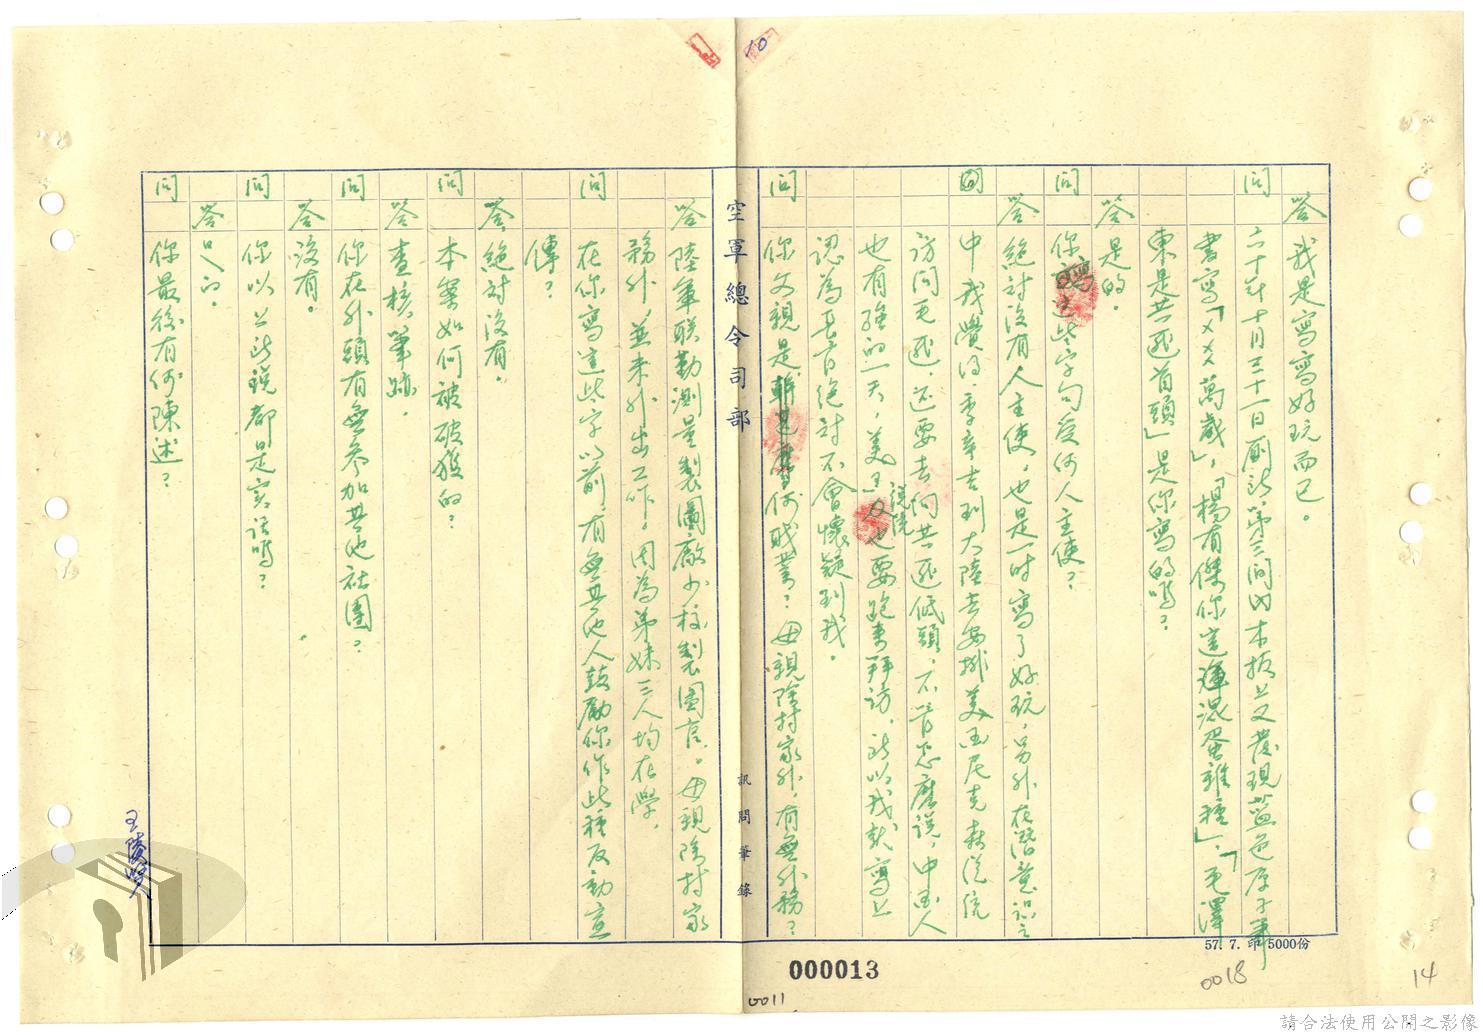 答 我是寫寫好玩而已。
問 六十年十月三十一日厠所第三間內木板上又發現藍色原子筆
書寫「×××萬歲」,「楊有傑你這渾混蛋雜種」,「毛澤
東是共匪首頭」是你寫的嗎?
答 是的。
問 你寫這些字句受何人主使?
答 絕對沒有人主使,也是一时寫了好玩,另外在潛意識之
中我覺得季辛吉到大陸去安排美國尼克森総統
訪問毛匪,还要去向共匪低頭,不管怎麼説,中国人
也有強的一天,美国総統也要跑來拜訪,所以我就寫上
認為長官絕対不會懷疑到我。
問 你父親是何職業?母親除持家外,有無外務?
空軍總令司部 訊問筆錄
答 陸軍联勤測量製圖廠少校製图官。母親除持家
務外,並未外出工作。因為弟妹三人均在學。
問 在你寫這些字以前,有無其他人鼓勵你作此種反動宣
傳?
答 絕対沒有。
問 本案如何被破獲的?
答 查核筆跡。
問 你在外頭有無參加其他社團?
答 沒有。
問 你以上所説都是实話嗎?
答 是的。
問 你最後有何陳述?
57. 7. 印 5000份
000013
0011
0018
14
10
請合法使用公開之影像